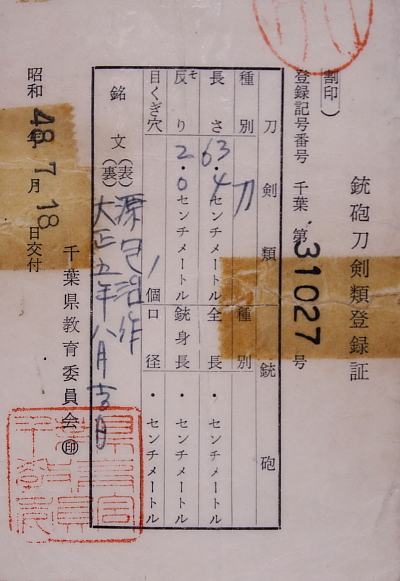 銃砲刀剣類登録証
(割印)
登録記号番号 千葉 第 31027 号
刀剣類 銃砲
種別 刀 種別
長さ 63・4センチメートル 全長 ・センチメートル
反り 2・0センチメートル 銃身長 ・センチメートル
そ
目くぎ穴 1個 口径 ・センチメートル
銘文 (表) 源包治作
(裏) 大正五年八月吉日
昭和 48年 7月 18日交付
千葉県教育委員会 印